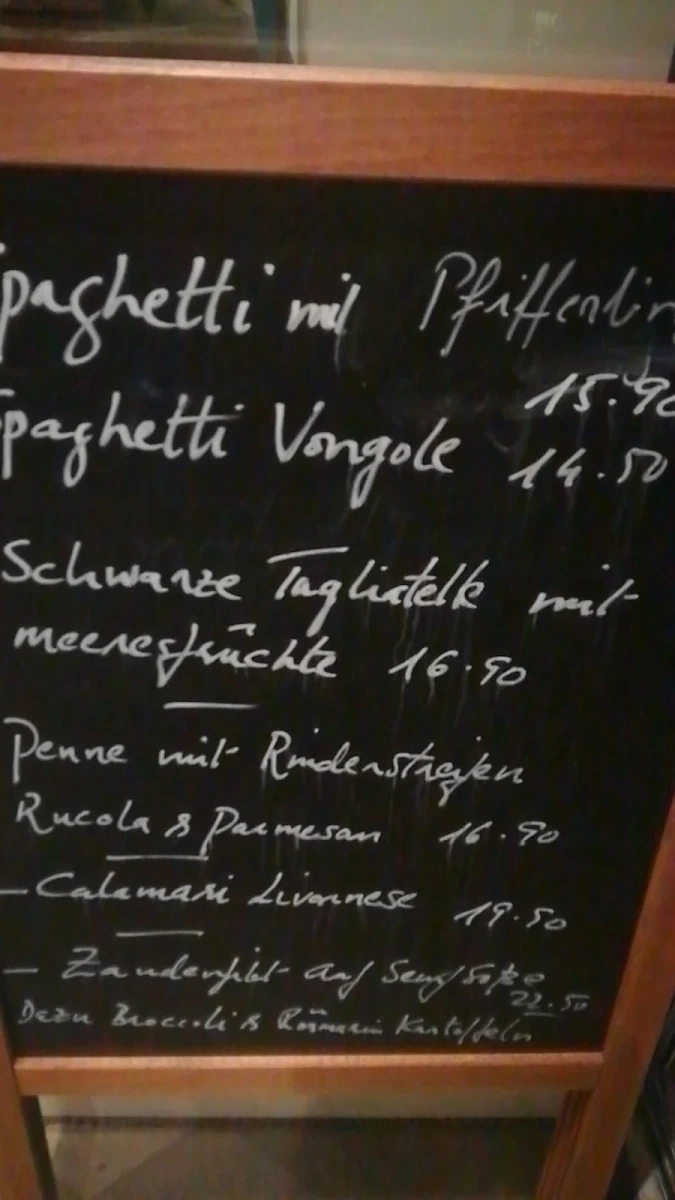 Spaghetti mit Pfifferlin
15.90
Spaghetti Vongole 14.50
Schwarze Tagliatelle mit
meeresfrüchte 16.90
Penne mit Rinderstreifen
Rucola & Parmesan 16.90
- Calamari Livornese 19.50
- Zanderfilet auf Senfsoße
22.50
Dazu Broccoli & Rosmarin Kartoffeln